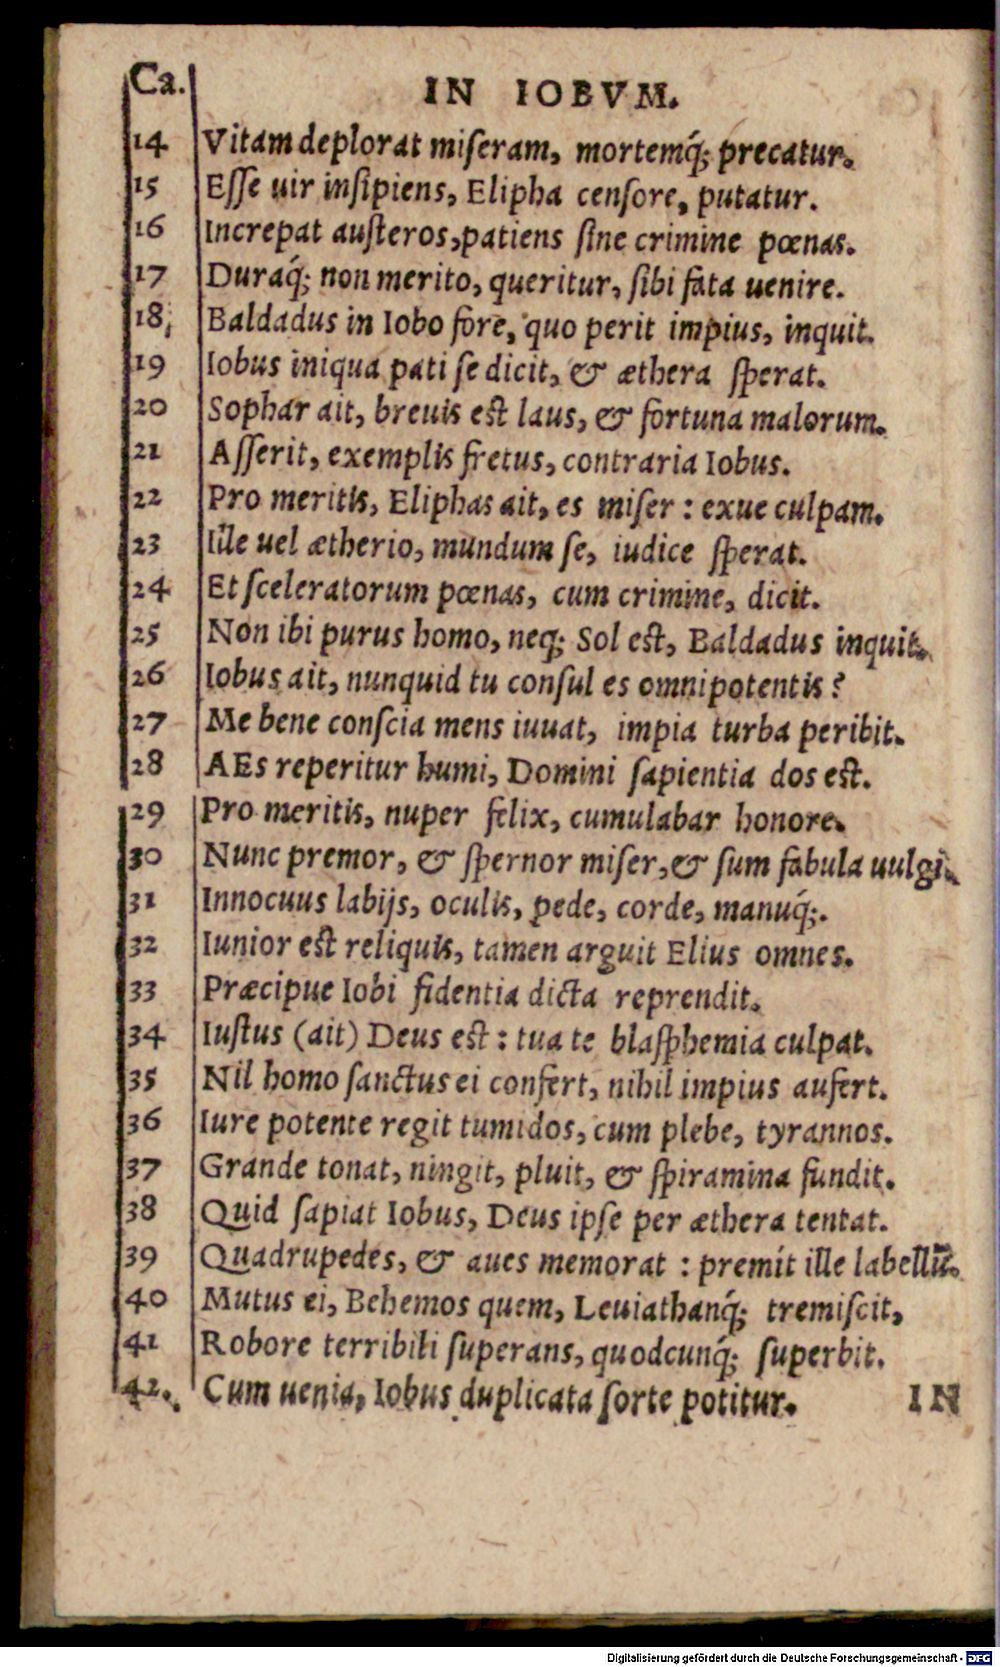 Ca. IN IOBVM.
14 Vitam deplorat miſeram, mortemq́; precatur.
15 Eſſe uir inſipiens, Elipha cenſore, putatur.
16 Increpat auſteros, patiens ſine crimine pœnas.
17 Duraq́; non merito, queritur, ſibi fata uenire.
18 Baldadus in Iobo fore, quo perit impius, inquit.
19 Iobus iniqua pati ſe dicit, & æthera ſperat.
20 Sophar ait, breuis eſt laus, & fortuna malorum.
21 Aſſerit, exemplis fretus, contraria Iobus.
22 Pro meritis, Eliphas ait, es miſer : exue culpam.
23 Ille uel ætherio, mundum ſe, iudice ſperat.
24 Et ſceleratorum pœnas, cum crimine, dicit.
25 Non ibi purus homo, neq; Sol eſt, Baldadus inquit.
26 Iobus ait, nunquid tu conſul es omnipotentis ?
27 Me bene conſcia mens iuuat, impia turba peribit.
28 AEs reperitur humi, Domini ſapientia dos eſt.
29 Pro meritis, nuper felix, cumulabar honore.
30 Nunc premor, & ſpernor miſer, & ſum fabula uulgi.
31 Innocuus labijs, oculis, pede, corde, manuq́;.
32 Iunior eſt reliquis, tamen arguit Elius omnes.
33 Præcipue Iobi fidentia dicta reprendit.
34 Iuſtus (ait) Deus eſt : tua te blaſphemia culpat.
35 Nil homo ſanctus ei confert, nihil impius aufert.
36 Iure potente regit tumidos, cum plebe, tyrannos.
37 Grande tonat, ningit, pluit, & ſpiramina fundit.
38 Quid ſapiat Iobus, Deus ipſe per æthera tentat.
39 Quadrupedes, & aues memorat : premit ille labellū.
40 Mutus ei, Behemos quem, Leuiathanq́; tremiſcit,
41 Robore terribili ſuperans, quodcunq́; ſuperbit.
42. Cum uenia, Iobus duplicata ſorte potitur.
IN
Digitalisierung gefördert durch die Deutsche Forschungsgemeinschaft - DFG